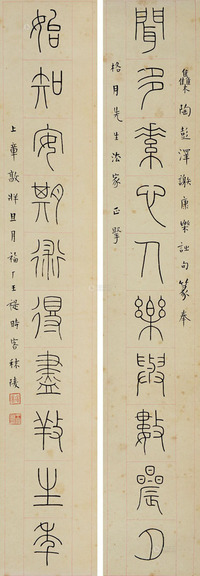 集陶彭澤謝康樂詩句篆奉
聞多素心人樂與數晨夕
格月先生法家 正
始知安期術得盡養生年
上章敦牂且月福厂王禔時客秣陵